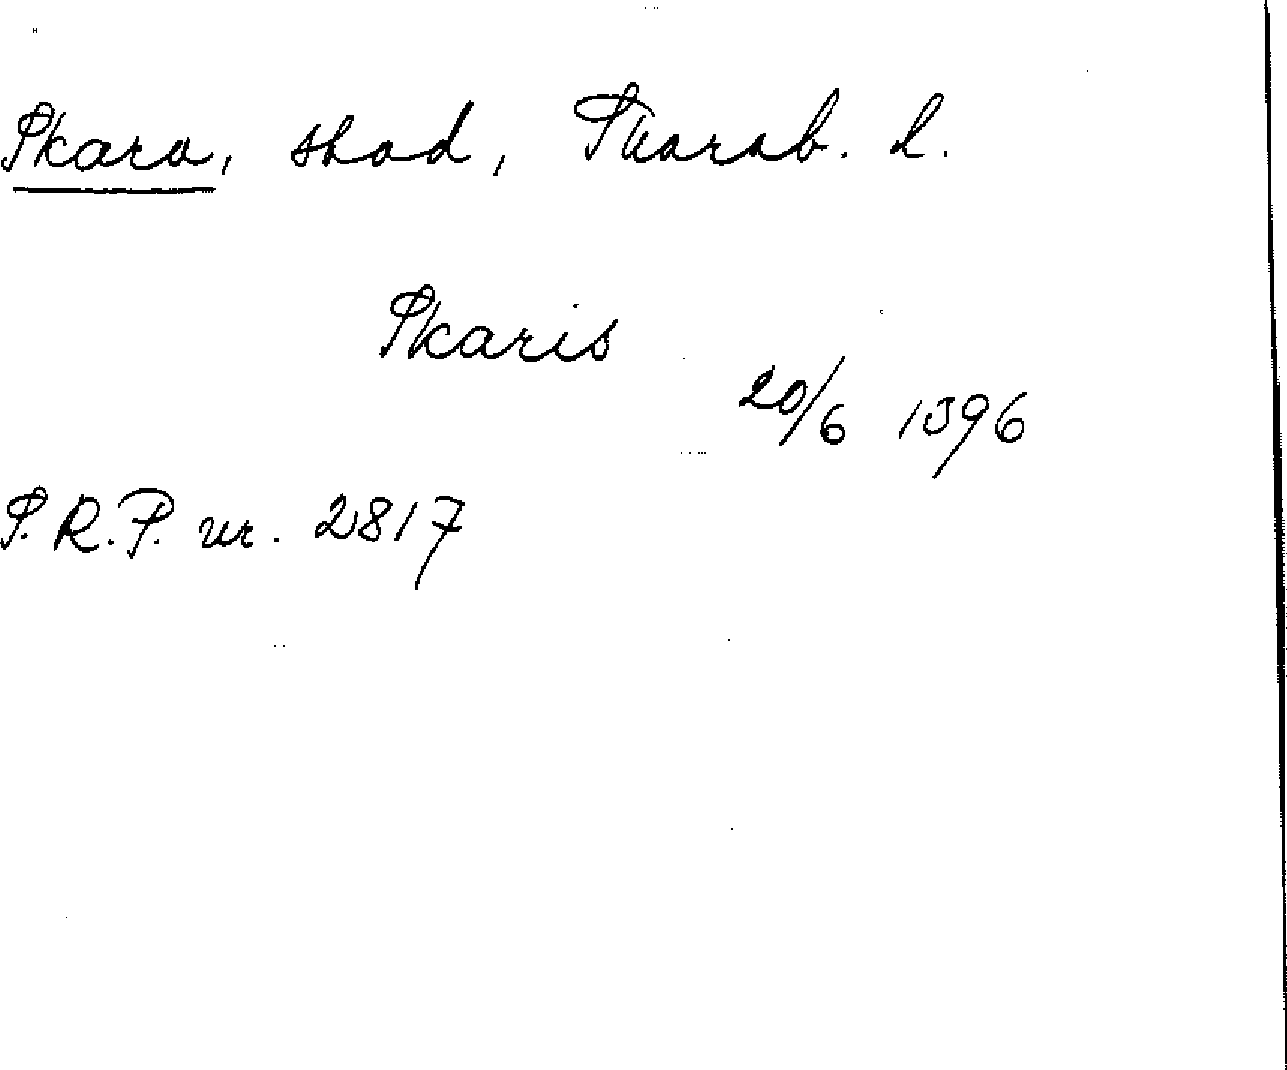 Skara, stad, Skarab. l.
Skaris
20/6 1396
S.R.P. nr. 2817